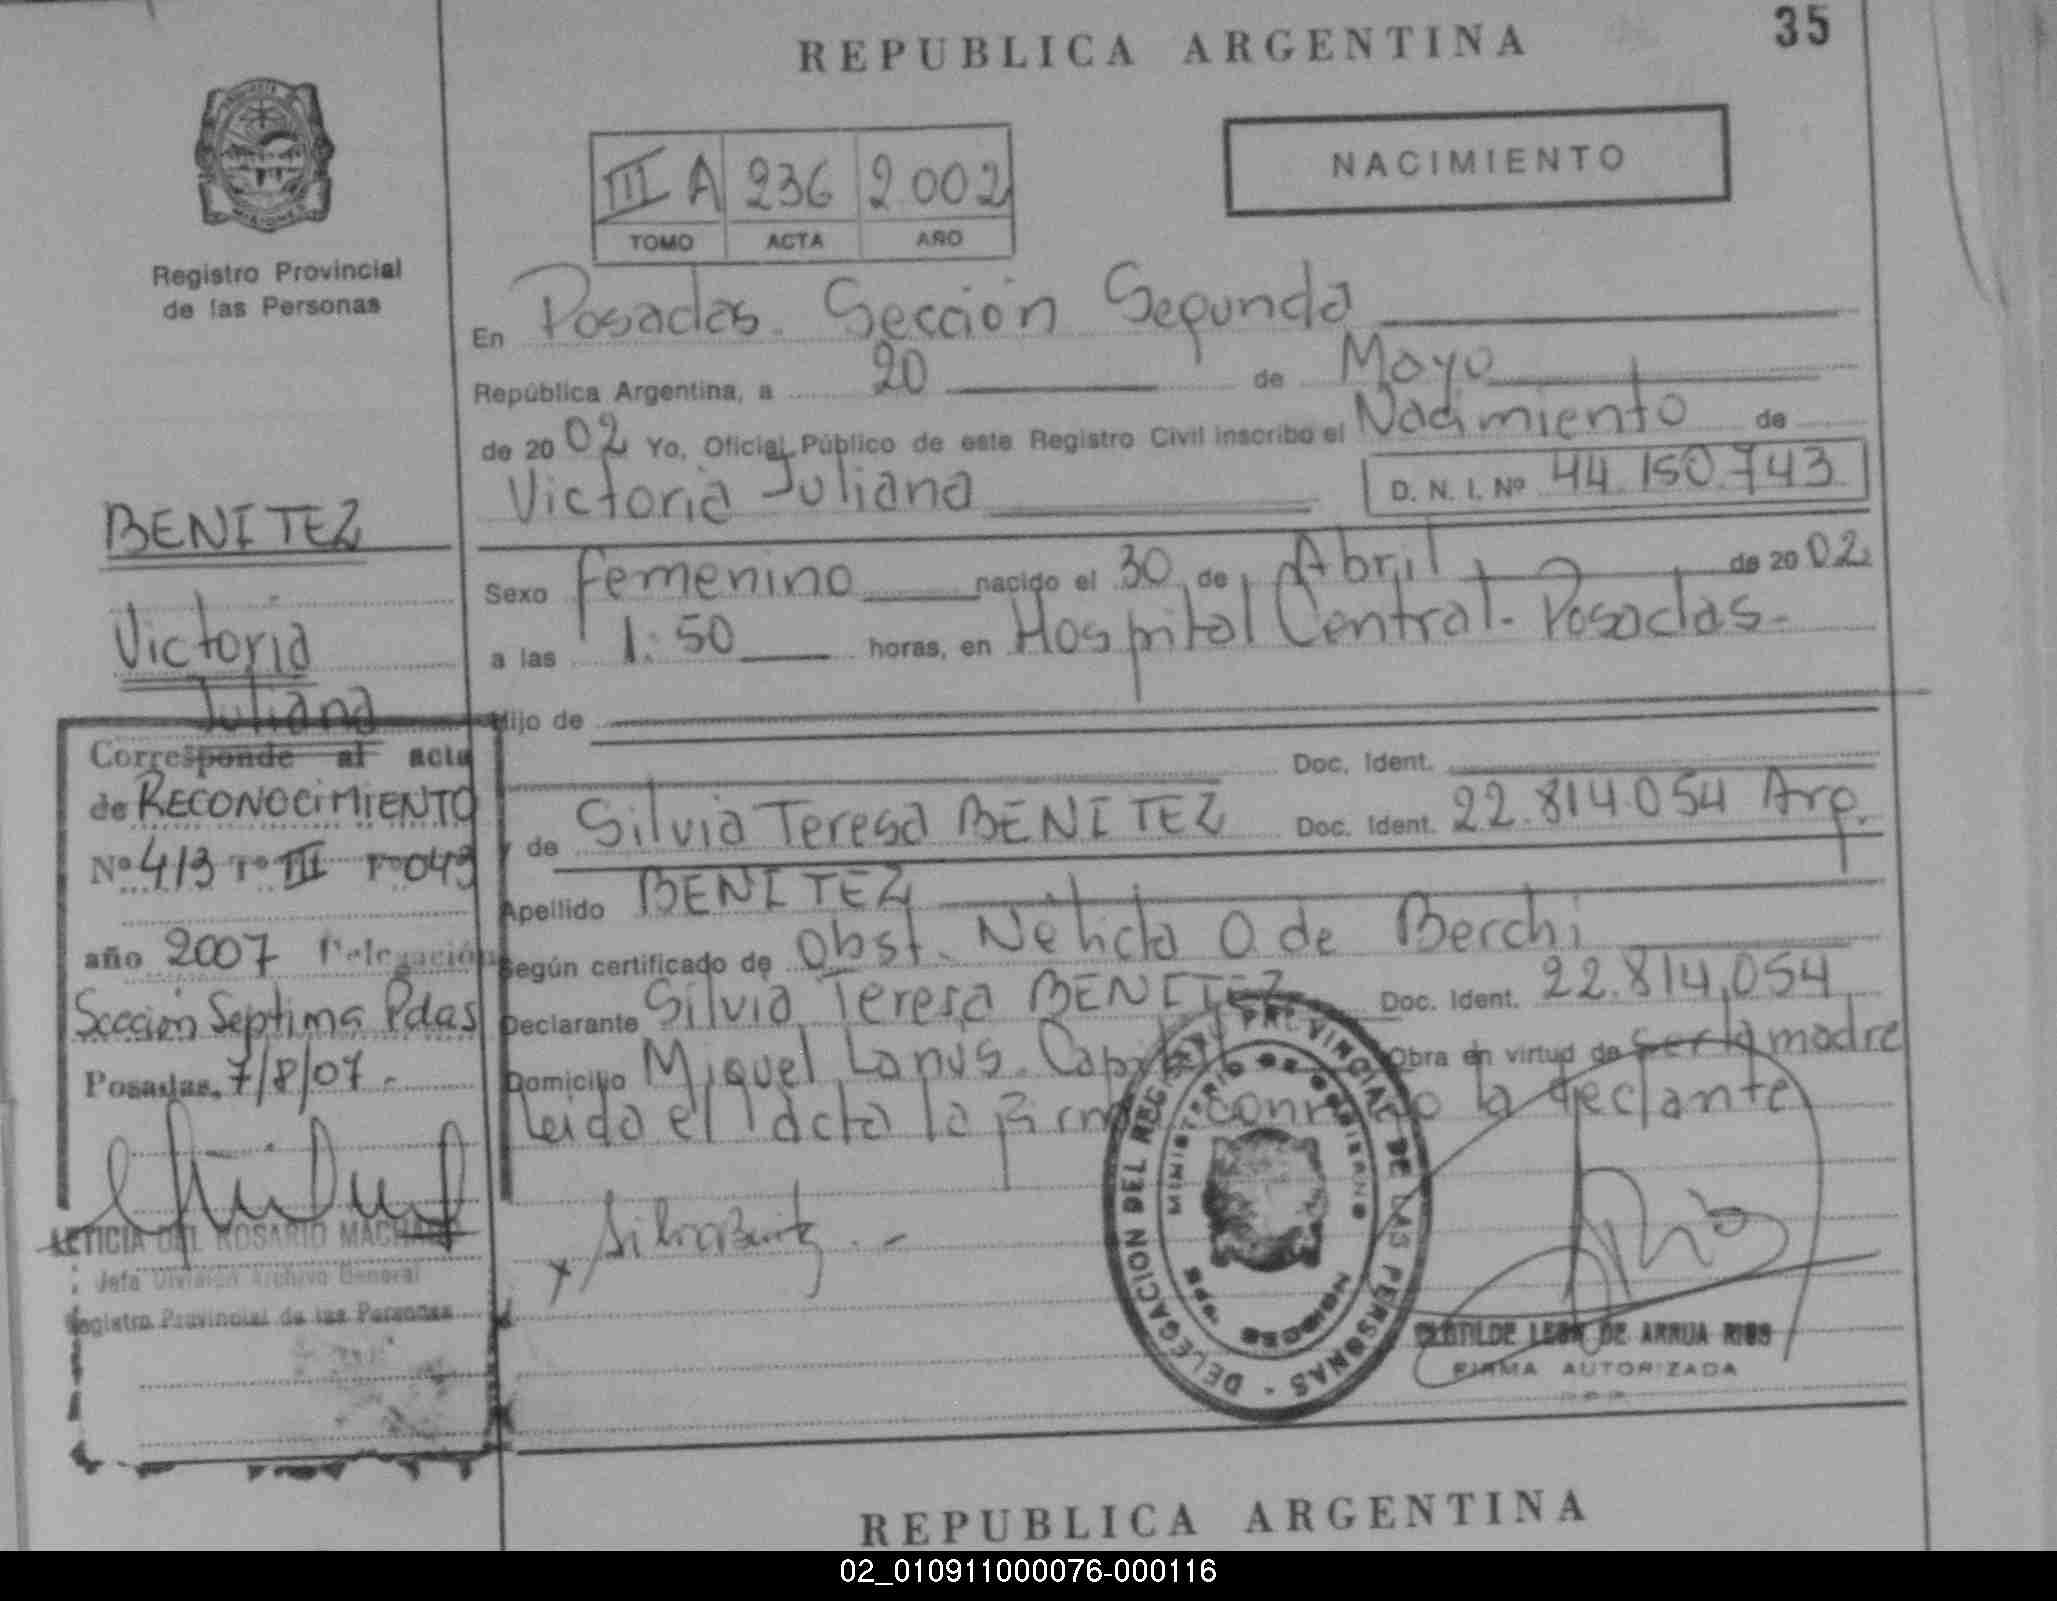 REPUBLICA ARGENTINA
35
NACIMIENTO
III A 236 2002
TOMO ACTA AÑO
Registro Provincial
de las Personas
En Posadas. Sección Segunda
República Argentina, a 20 de Mayo
de 2002 Yo, Oficial Público de este Registro Civil inscribo el Nacimiento de
Victoria Juliana D. N. I. Nº 44.150.743
BENITEZ
Victoria
Juliana
Sexo femenino nacido el 30 de Abril de 2002
a las 1:50 horas, en Hospital Central. Posadas.
Hijo de
Doc. Ident.
y de Silvia Teresa BENITEZ Doc. Ident. 22.814.054 Arg.
Apellido BENITEZ
Según certificado de Obst. O. de Berchi
Declarante Silvia Teresa BENITEZ Doc. Ident. 22.814.054
Domicilio Miguel Lanus. Obra en virtud de ser la madre
Leida el acta la la declante
Corresponde al acta
de RECONOCIMIENTO
Nº 413 Tº III Fº 043
año 2007 Delegación
Sección Septima Pdas
Posadas, 7/8/07.-
LETICIA DEL ROSARIO
Jefa División Archivo General
Registro Provincial de las Personas
DELEGACION DEL REGISTRO PROVINCIAL DE LAS PERSONAS
MINISTERIO DE GOBIERNO
CLOTILDE LEON DE ARRUA RIOS
FIRMA AUTORIZADA
REPUBLICA ARGENTINA
02_010911000076-000116